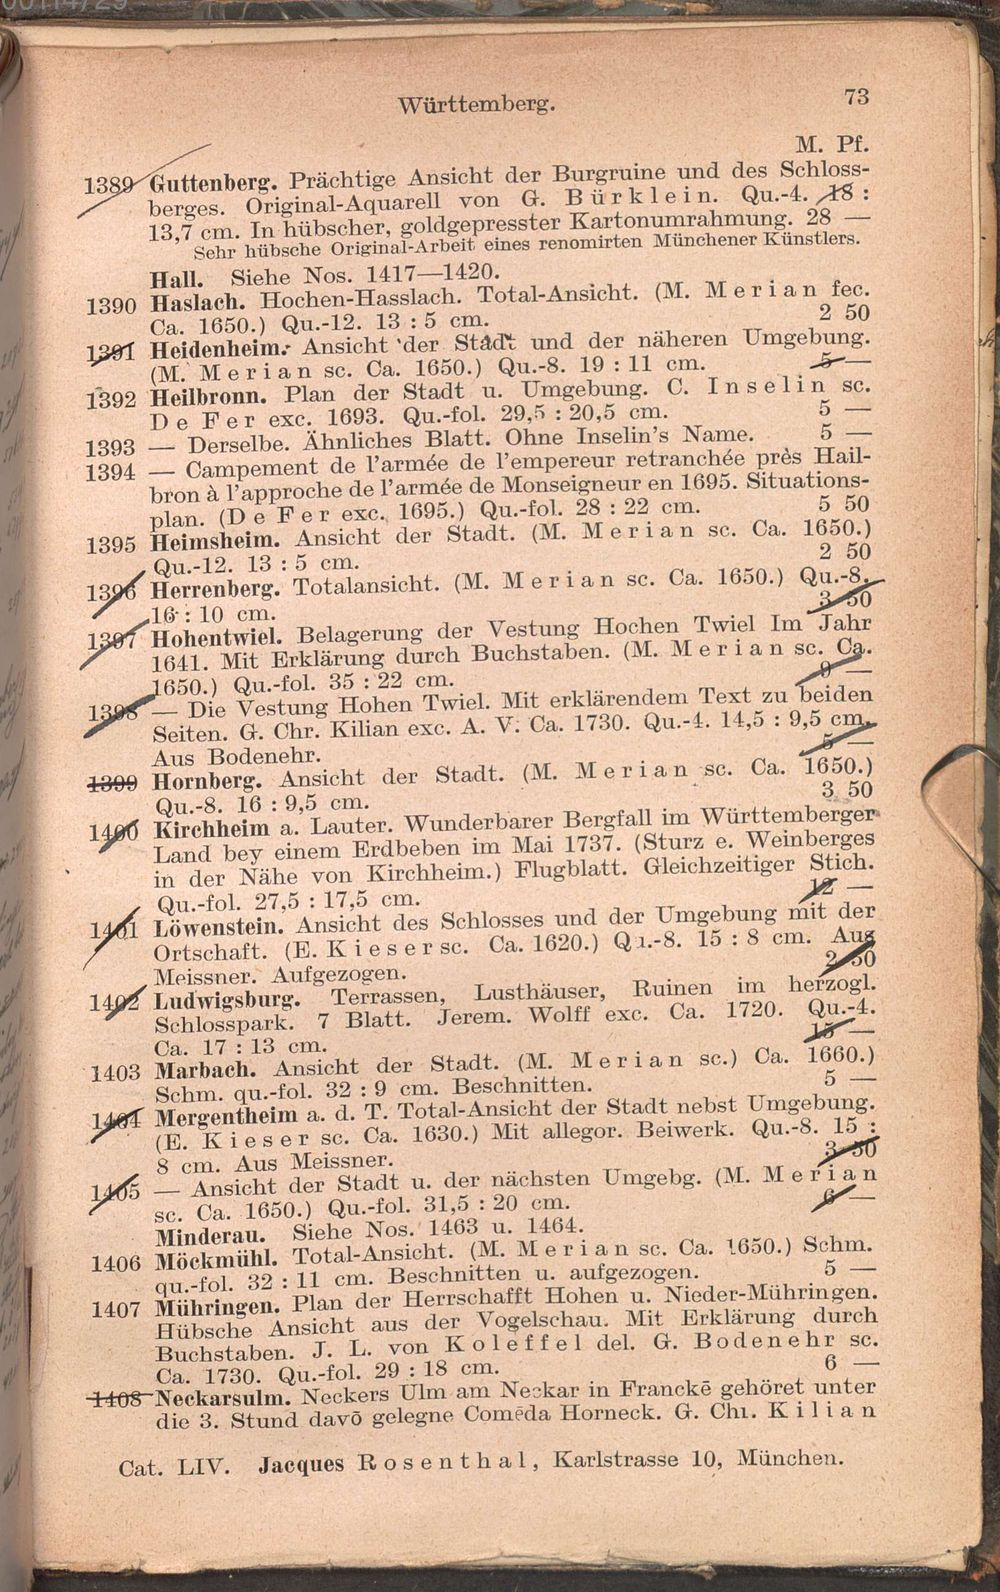 00114729
Württemberg.
73
M. Pf.
1389 Guttenberg. Prächtige Ansicht der Burgruine und des Schloss-
berges. Original-Aquarell von G. Bürklein. Qu.-4. 18 :
13,7 cm. In hübscher, goldgepresster Kartonumrahmung. 28 —
Sehr hübsche Original-Arbeit eines renomirten Münchener Künstlers.
Hall. Siehe Nos. 1417—1420.
1390 Haslach. Hochen-Hasslach. Total-Ansicht. (M. Merian fec.
Ca. 1650.) Qu.-12. 13 : 5 cm. 2 50
1391 Heidenheim. Ansicht der Stadt und der näheren Umgebung.
(M. Merian sc. Ca. 1650.) Qu.-8. 19 : 11 cm. 5 —
1392 Heilbronn. Plan der Stadt u. Umgebung. C. Inselin sc.
De Fer exc. 1693. Qu.-fol. 29,5 : 20,5 cm. 5 —
1393 — Derselbe. Ähnliches Blatt. Ohne Inselin's Name. 5 —
1394 — Campement de l'armée de l'empereur retranchée près Hail-
bron à l'approche de l'armée de Monseigneur en 1695. Situations-
plan. (De Fer exc. 1695.) Qu.-fol. 28 : 22 cm. 5 50
1395 Heimsheim. Ansicht der Stadt. (M. Merian sc. Ca. 1650.)
Qu.-12. 13 : 5 cm. 2 50
1396 Herrenberg. Totalansicht. (M. Merian sc. Ca. 1650.) Qu.-8.
16 : 10 cm. 3 50
1397 Hohentwiel. Belagerung der Vestung Hochen Twiel Im Jahr
1641. Mit Erklärung durch Buchstaben. (M. Merian sc. Ca.
1650.) Qu.-fol. 35 : 22 cm. 9 —
1398 — Die Vestung Hohen Twiel. Mit erklärendem Text zu beiden
Seiten. G. Chr. Kilian exc. A. V. Ca. 1730. Qu.-4. 14,5 : 9,5 cm.
Aus Bodenehr. 5 —
1399 Hornberg. Ansicht der Stadt. (M. Merian sc. Ca. 1650.)
Qu.-8. 16 : 9,5 cm. 3 50
1400 Kirchheim a. Lauter. Wunderbarer Bergfall im Württemberger
Land bey einem Erdbeben im Mai 1737. (Sturz e. Weinberges
in der Nähe von Kirchheim.) Flugblatt. Gleichzeitiger Stich.
Qu.-fol. 27,5 : 17,5 cm. 12 —
1401 Löwenstein. Ansicht des Schlosses und der Umgebung mit der
Ortschaft. (E. Kieser sc. Ca. 1620.) Qu.-8. 15 : 8 cm. Aus
Meissner. Aufgezogen. 2 50
1402 Ludwigsburg. Terrassen, Lusthäuser, Ruinen im herzogl.
Schlosspark. 7 Blatt. Jerem. Wolff exc. Ca. 1720. Qu.-4.
Ca. 17 : 13 cm. 15 —
1403 Marbach. Ansicht der Stadt. (M. Merian sc.) Ca. 1660.)
Schm. qu.-fol. 32 : 9 cm. Beschnitten. 5 —
1404 Mergentheim a. d. T. Total-Ansicht der Stadt nebst Umgebung.
(E. Kieser sc. Ca. 1630.) Mit allegor. Beiwerk. Qu.-8. 15 :
8 cm. Aus Meissner. 3 50
1405 — Ansicht der Stadt u. der nächsten Umgebg. (M. Merian
sc. Ca. 1650.) Qu.-fol. 31,5 : 20 cm. 6 —
Minderau. Siehe Nos. 1463 u. 1464.
1406 Möckmühl. Total-Ansicht. (M. Merian sc. Ca. 1650.) Schm.
qu.-fol. 32 : 11 cm. Beschnitten u. aufgezogen. 5 —
1407 Mühringen. Plan der Herrschafft Hohen u. Nieder-Mühringen.
Hübsche Ansicht aus der Vogelschau. Mit Erklärung durch
Buchstaben. J. L. von Koleffel del. G. Bodenehr sc.
Ca. 1730. Qu.-fol. 29 : 18 cm. 6 —
1408 Neckarsulm. Neckers Ulm am Neckar in Franckē gehöret unter
die 3. Stund davō gelegne Comēda Horneck. G. Chr. Kilian
Cat. LIV. Jacques Rosenthal, Karlstrasse 10, München.